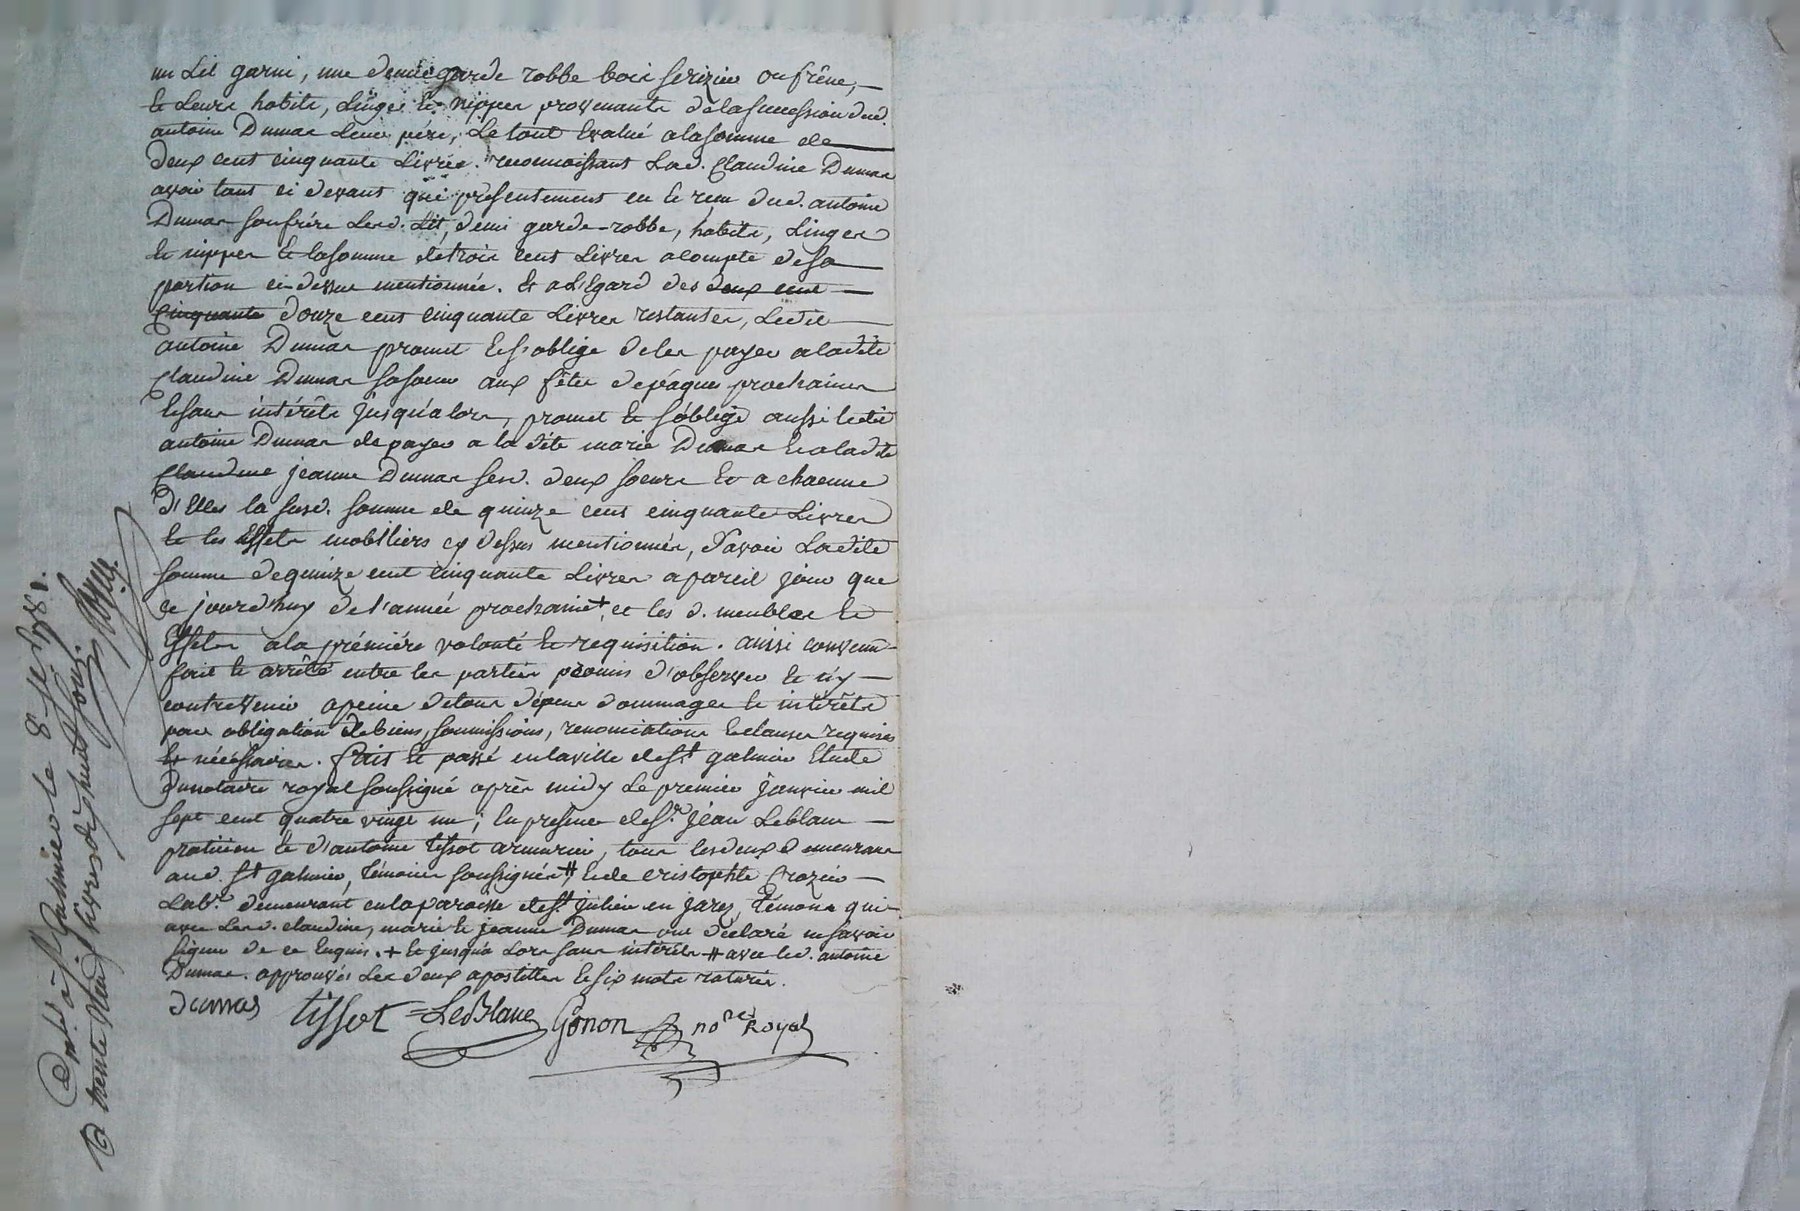 un Lit garni, une demie garde robbe bois serizier ou frêne,
et Leurs habits, Linges et nippes provenants de la succession dud.
antoine Dumas Leur pére, Le tout Evalué a la somme de
deux cent cinquante Livres. reconnoissant Lad. Claudine Dumas
avoir tant ci devant que présentement eu et reçu dud. antoine
Dumas son frére Lesd. Lit, demi garde-robbe, habits, Linges
et nippes et la somme de trois cent Livres a compte de sa
portion ci-dessus mentionnée. Et a L'Egard des deux cent
cinquante douze cent cinquante Livres restantes, Ledit
antoine Dumas promet et s'oblige de les payer a ladite
Claudine Dumas sa soeur aux fêtes de pâques prochaines
et sans intérêts jusqu'alors, promet et s'oblige aussi ledit
antoine Dumas de payer a la dite marie Dumas et a la dite
Claudine jeanne Dumas ses d. deux soeurs et a chacune
d'Elles la susd. somme de quinze cent cinquante Livres
et les Effets mobiliers cy dessus mentionnés, Savoir Ladite
somme de quinze cent cinquante Livres a pareil jour que
ce jourd'huy de l'année prochaine + et les d. meubles et
Effets a la prémiére volonté et requisition. ainsi convenu
fait et arrêté entre les parties promis d'observer et n'y
contrevenir a peine de tous dépens dommages et intérêts
par obligation de biens, soumissions, renonciations et clauses requises
et nécéssaires. fait et passé en la ville de St galmier Etude
du notaire royal soussigné aprês midy Le premier janvier mil
sept cent quatre vingt un; En présence de Sr. jéan Leblanc
praticien et d'antoine tissot armurier, tous les deux demeurans
aud. St galmier, témoins soussignés # et de cristophle Crozier
Labr. demeurant en la paroisse de St julien en jarez, témoins qui
avec Lesd. claudine, marie et jeanne Dumas ont déclaré ne savoir
signer de ce Enquis. + et jusqu'a Lors sans intérêts # avec led. antoine
Dumas. approuvés Les deux apostilles et six mots raturés.
dumas tissot =LeBlanc Gonon nore Royal
Con.lé à St galmier le 8e. je. 1781.
R trente neuf livres dixhuit sous.